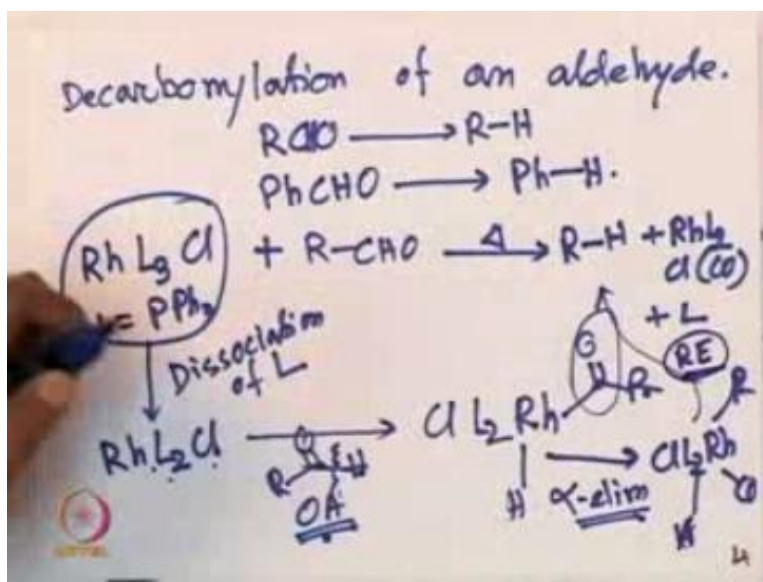 Decarbonylation of an aldehyde.
RCHO ⟶ R-H
PhCHO ⟶ Ph-H.
RhL₃Cl + R-CHO —Δ→ R-H + RhL₂
Cl(CO)
L = PPh₃
+ L
Dissociation
of L
O
RE
R
RhL₂Cl ⟶ Cl L₂Rh R ClL₂Rh
O
R H
H
α-elim
CO
OA
H
4